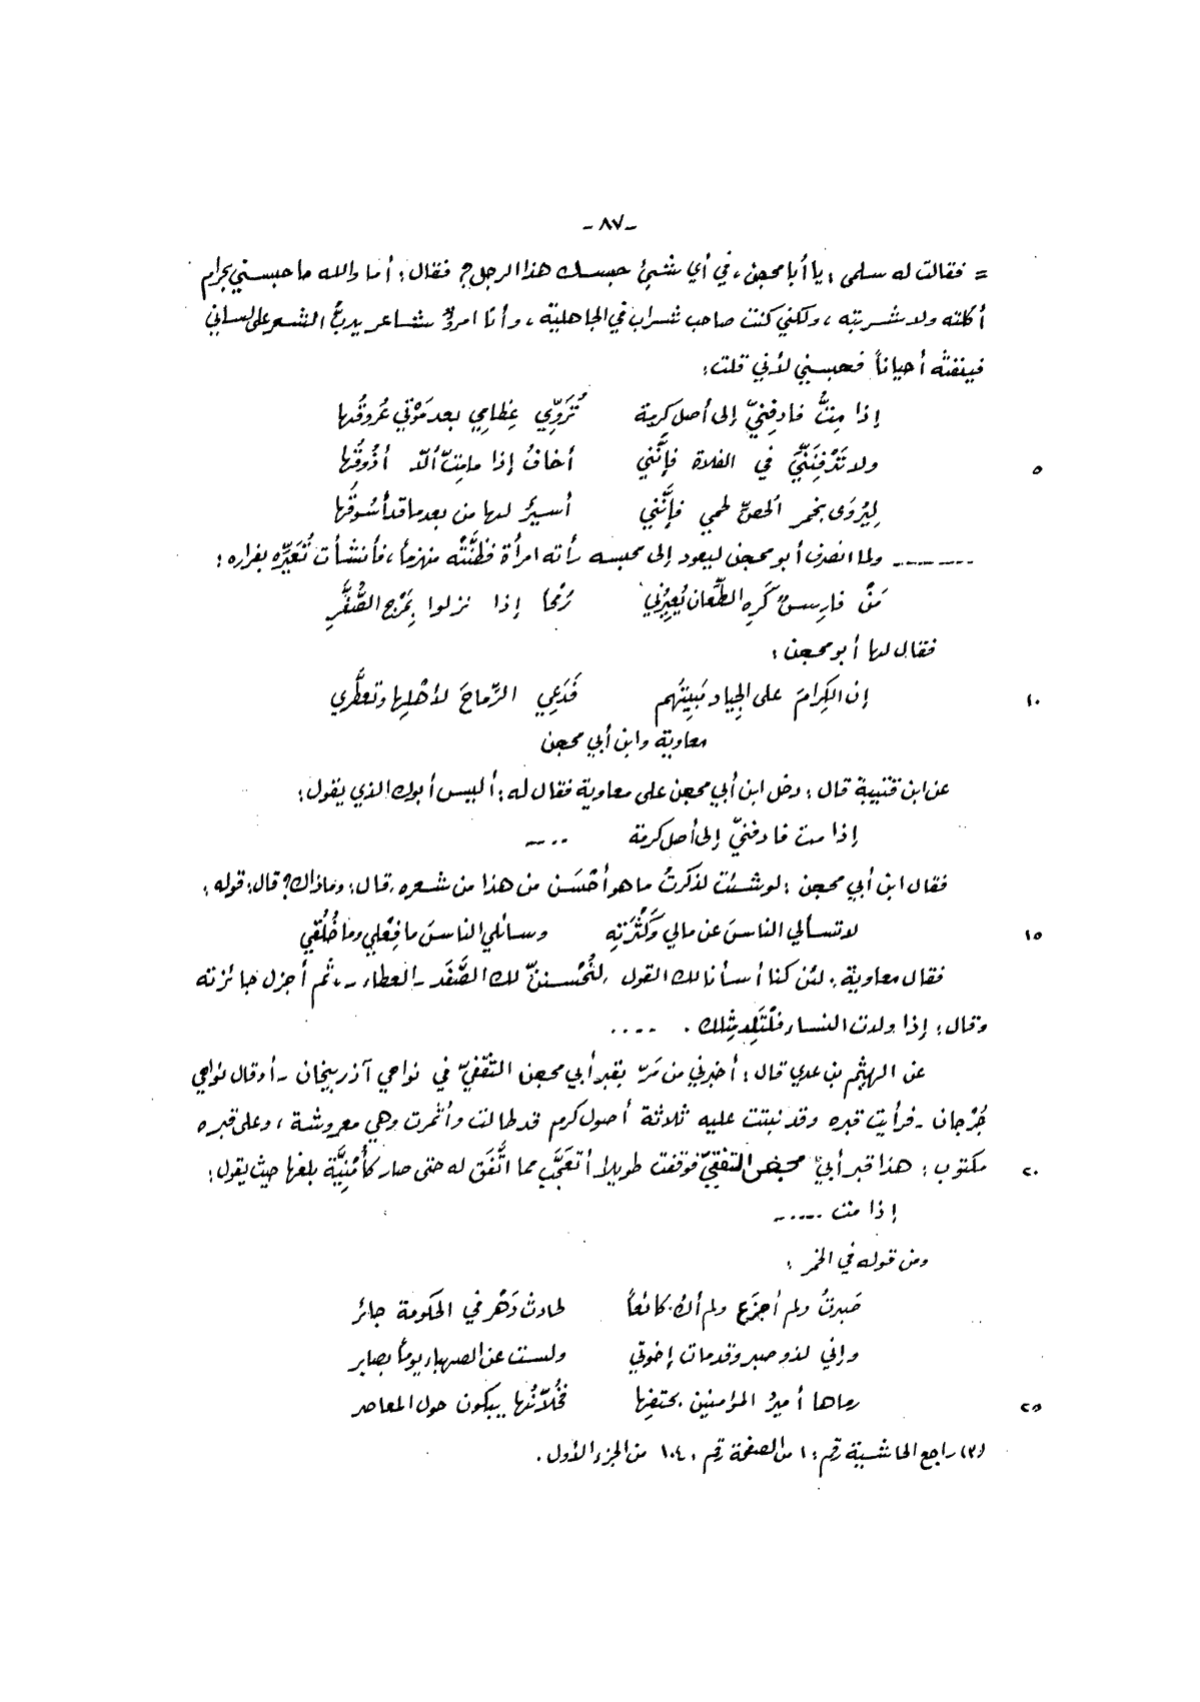 -٨٧-
= فقالت له سلمى : يا أبا محجن ، في أي شيئ حبسك هذا الرجل ؟ فقال : أما والله ما حبسني بحرام
أكلته ولا شربته ، ولكني كنت صاحب شراب في الجاهلية ، وأنا امرؤ شاعر يدبّ الشعر على لساني
فينفثه أحياناً فحبسني لأني قلت :
إذا متُّ فادفِنِّي إلى أصل كرمة تُرَوِّي عِظامِي بعد مَوْتي عُروقُها
٥ ولا تَدْفِنَنِّي في الفلاة فإنَّني أخافُ إذا ما متّ ألّا أذُوقُها
لِيُرْوَى بخمر الحصّ لحمي فإنَّني أسيرٌ لها من بعد ما قد أسُوقُها
-------- ولما انصرف أبو محجن ليعود إلى محبسه رأته امرأة فظنَّتْه منهزماً ، فأنشأت تُعَيِّره بفراره :
مَنْ فارسٌ كَرِه الطّعان يُعِيرُني رُمْحاً إذا نزلوا بِمَرْج الصُّفَّرِ
فقال لها أبو محجن :
١٠ إن الكِرامَ على الجِياد مَبِيتُهم فَدَعِي الرّماحَ لأهْلِها وتعطَّري
معاوية وابن أبي محجن
عن ابن قتيبة قال : دخل ابن أبي محجن على معاوية فقال له : أليس أبوك الذي يقول :
إذا مت فادفنيّ إلى أصل كرمة ----
فقال ابن أبي محجن : لو شئت لذكرتُ ما هو أحْسَن من هذا من شعره ، قال : وماذاك ؟ قال : قوله :
١٥ لا تسألي الناسَ عن مالي وَكَثْرَتِه وسائلي الناسَ ما فِعْلي وما خُلُقي
فقال معاوية : لئن كنا أسأنا لك القول ، لنُحْسننّ لك الصَّفَد - العطاء - ، ثم أجزل جائزته
وقال : إذا ولدت النساء فلْتَلِد مِثلك . ----
عن الهيثم بن عدي قال : أخبرني من مَرّ بقبر أبي محجن الثقفيّ في نواحي آذربيجان - أوقال نواحي
جُرْجان - فرأيت قبره وقد نبتت عليه ثلاثة أصول كرم قد طالت وأثمرت وهي معروشة ، وعلى قبره
٢٠ مكتوب : هذا قبر أبي محجن الثقفيّ فوقفت طويلاً أتعَجَّب مما اتَّفَق له حتى صار كأُمْنِيَّة بلغها حيث يقول :
إذا مت -----
ومن قوله في الخمر :
صَبرتُ ولم أجزَع ولم أك كائعاً لحادث دَهْر في الحكومة جائر
وإني لذو صبر وقد مات إخوتي ولست عن الصهباء يوماً بصابر
٢٥ رماها أميرُ المؤمنين بحتفِها فخُلّانُها يبكون حول المعاصر
(٢) راجع الحاشية رقم : ١ من الصفحة رقم : ١٠٤ من الجزء الأول .